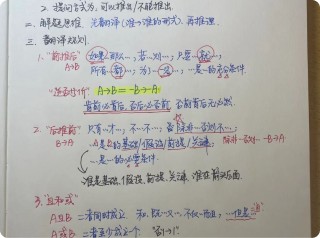 2. 提问方式为,可以推出/不能推出.
二、解题思维 先翻译(谁→谁的形式),再推理.
三、翻译规则.
1. "前推后" 如果…那么…; 若…则…; 只要…就…;
A→B 所有…都…; 为了…; …是…的充分条件.
"逆否等价" A→B = -B→-A
肯前必肯后, 否后必否前, 否前肯后无必然.
2. "后推前" 只有…才…, 不…不…; 除非…否则不…;
B→A …是…的基础/假设/前提/关键; 除非…否则…-B→A
…是…的必要条件.
谁是基础、假设、前提、关键, 谁在箭头后面.
3. "且和或"
A且B = 二者同时成立 和、既…又…、不仅…而且、…但是…
A或B = 二者至少成立一个 "否1→1"